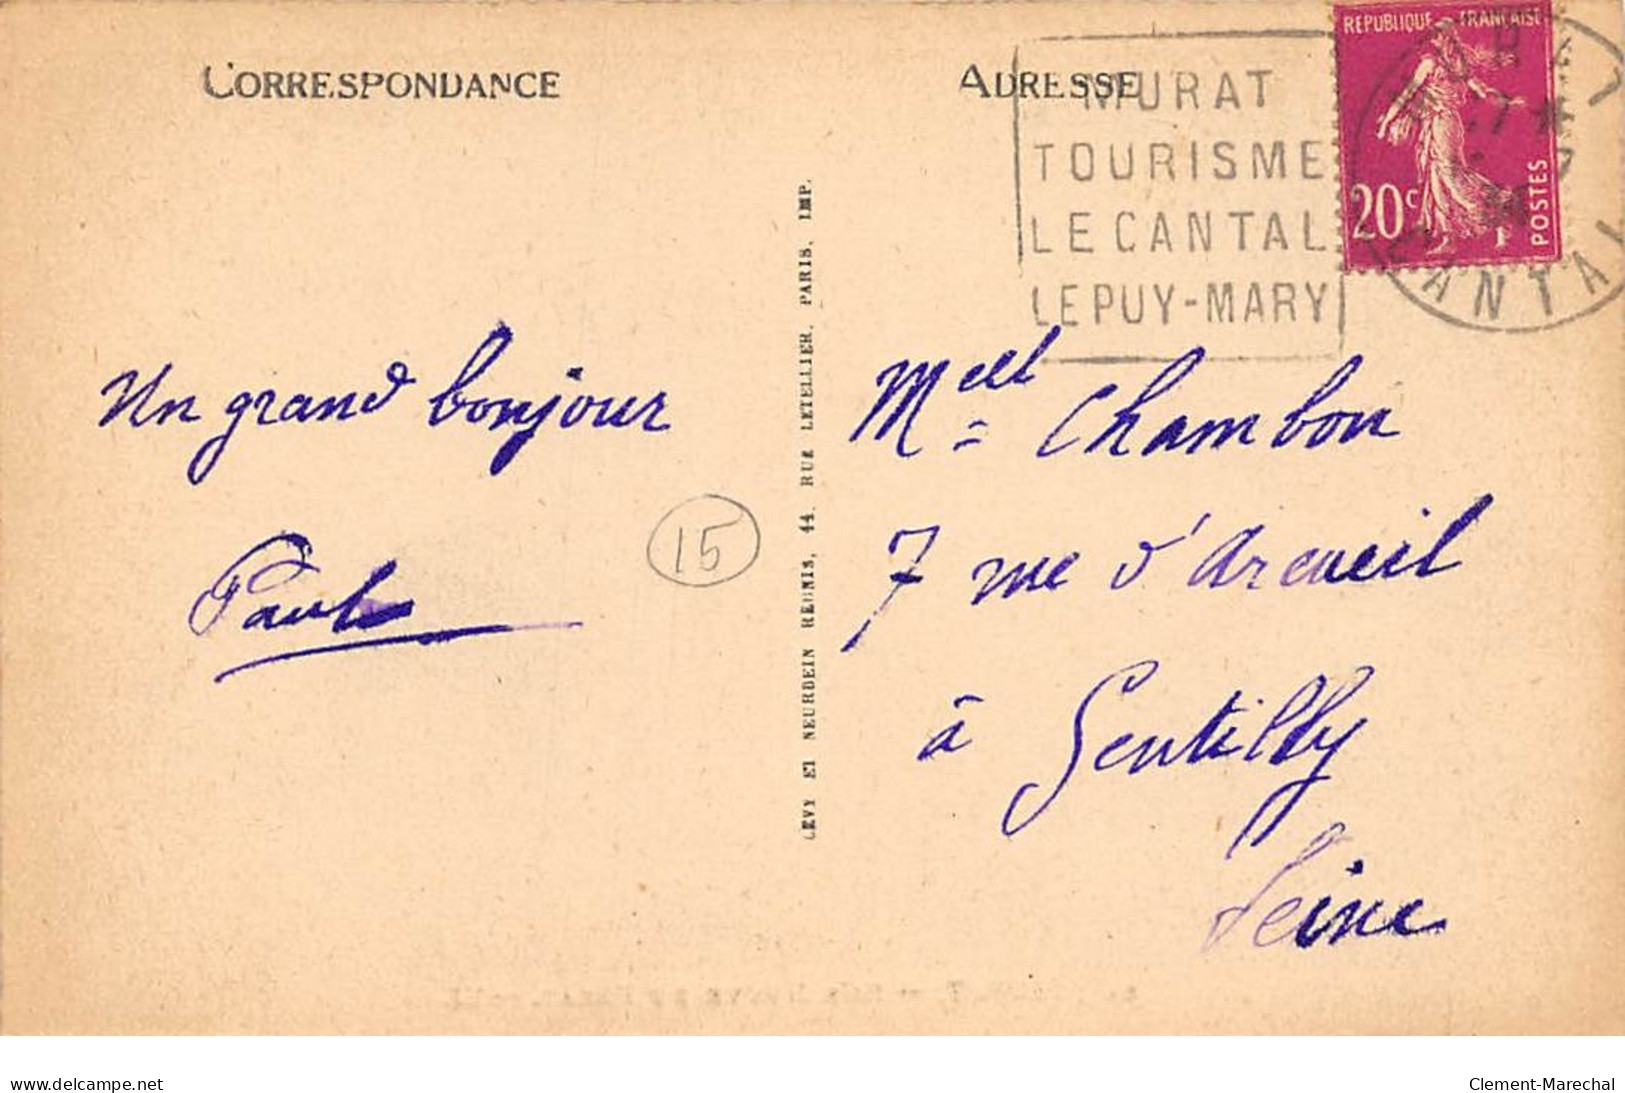 CORRESPONDANCE
ADRESSE
MURAT
TOURISME
LE CANTAL
LE PUY-MARY
REPUBLIQUE FRANÇAISE
20c
POSTES
CANTAL
Un grand bonjour
Paul
15
LÉVY ET NEURDEIN RÉUNIS, 44, RUE LETELLIER, PARIS. IMP.
Melle Chambon
7 rue d'Arcueil
à Gentilly
Seine
www.delcampe.net
Clement-Marechal